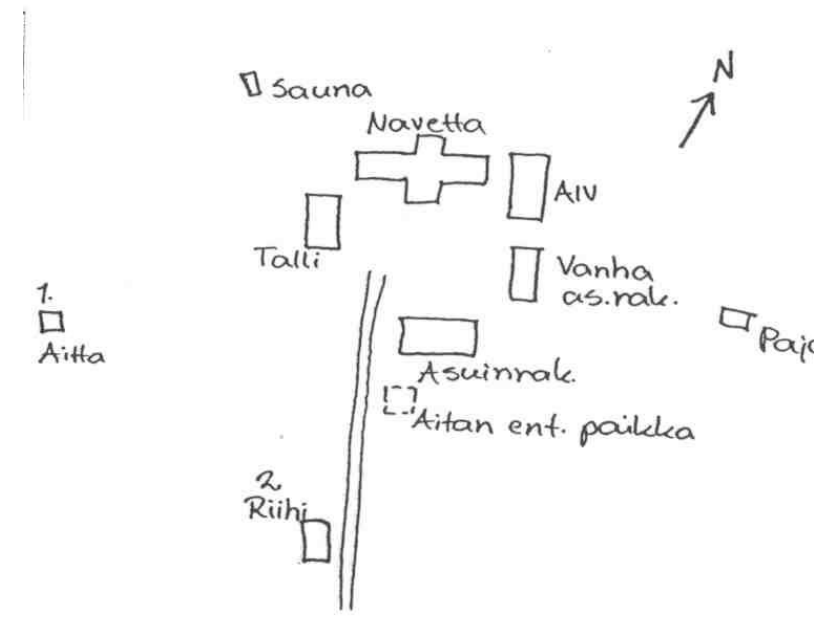 N
Sauna
Navetta
AIV
Talli
Vanha
as.rak.
1.
Aitta
Paja
Asuinrak.
Aitan ent. paikka
2.
Riihi